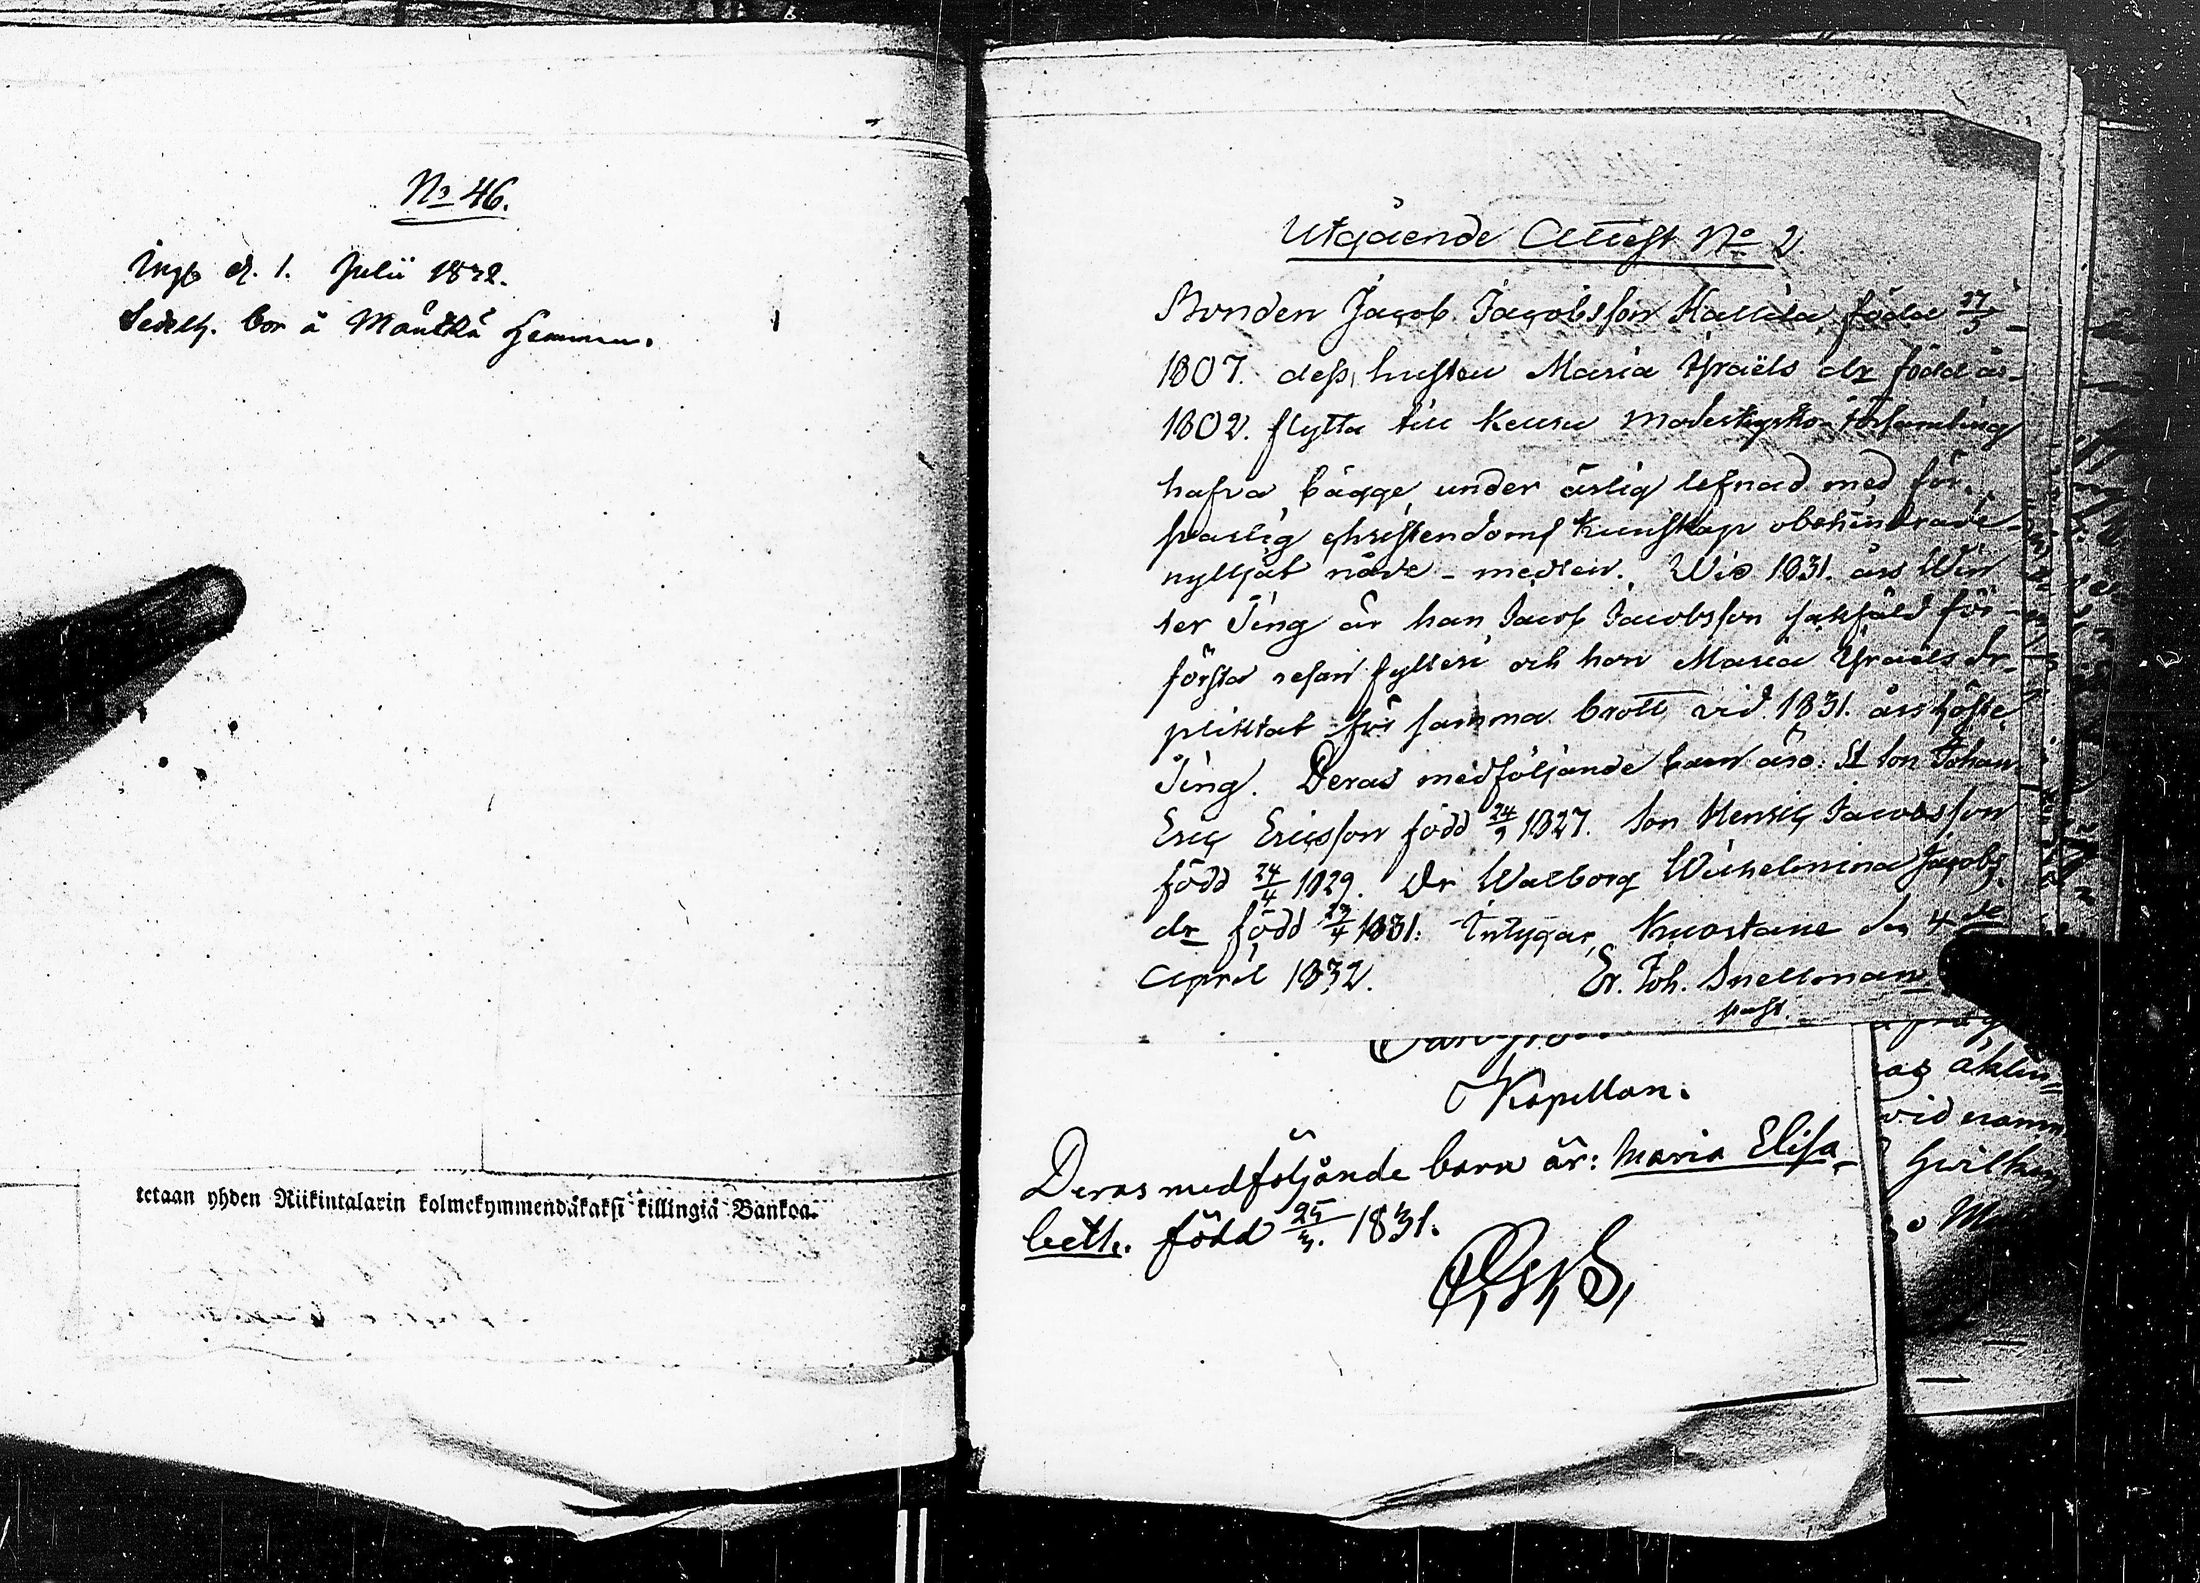 No 46.
Ingb d. 1. Julii 1832.
Sedelh. bor å Mänttä Hemman.
tetaan yhden Riikintalarin kolmekymmendäkaksi killingiä Bankoa.
Utgående Attest No 2
Bonden Jacob Jacobsson Kallila född 27/5
1807. dess hustru Maria Israëls dr född år
1802. flytta till Keuru Moderkyrko-församling
hafva bägge under ärlig lefnad med för-
svarlig christendoms kunskap obehindrade
nylljat nåde-medlen. Wid 1831. års Win
ter Ting är han Jacob Jacobsson sakfäld för
första resan fylleri och hon Maria Israels dr
pliktat för samma brott vid 1831. års Höste
Ting. Deras medföljande barn äro: St son Johan
Eric Ericsson född 24/9 1827. Son Henric Jacobsson
född 24/4 1829. Dr Walborg Wilhelmina Jacobs
dr född 23/4 1831. Intygar, Kuortane den 4de
April 1832. Er. Joh. Snellman
past.
Kapellan.
Deras medföljande barn är: Maria Elisa-
beth. född 25/3. 1831.
as åklin
vid namn
hvilken